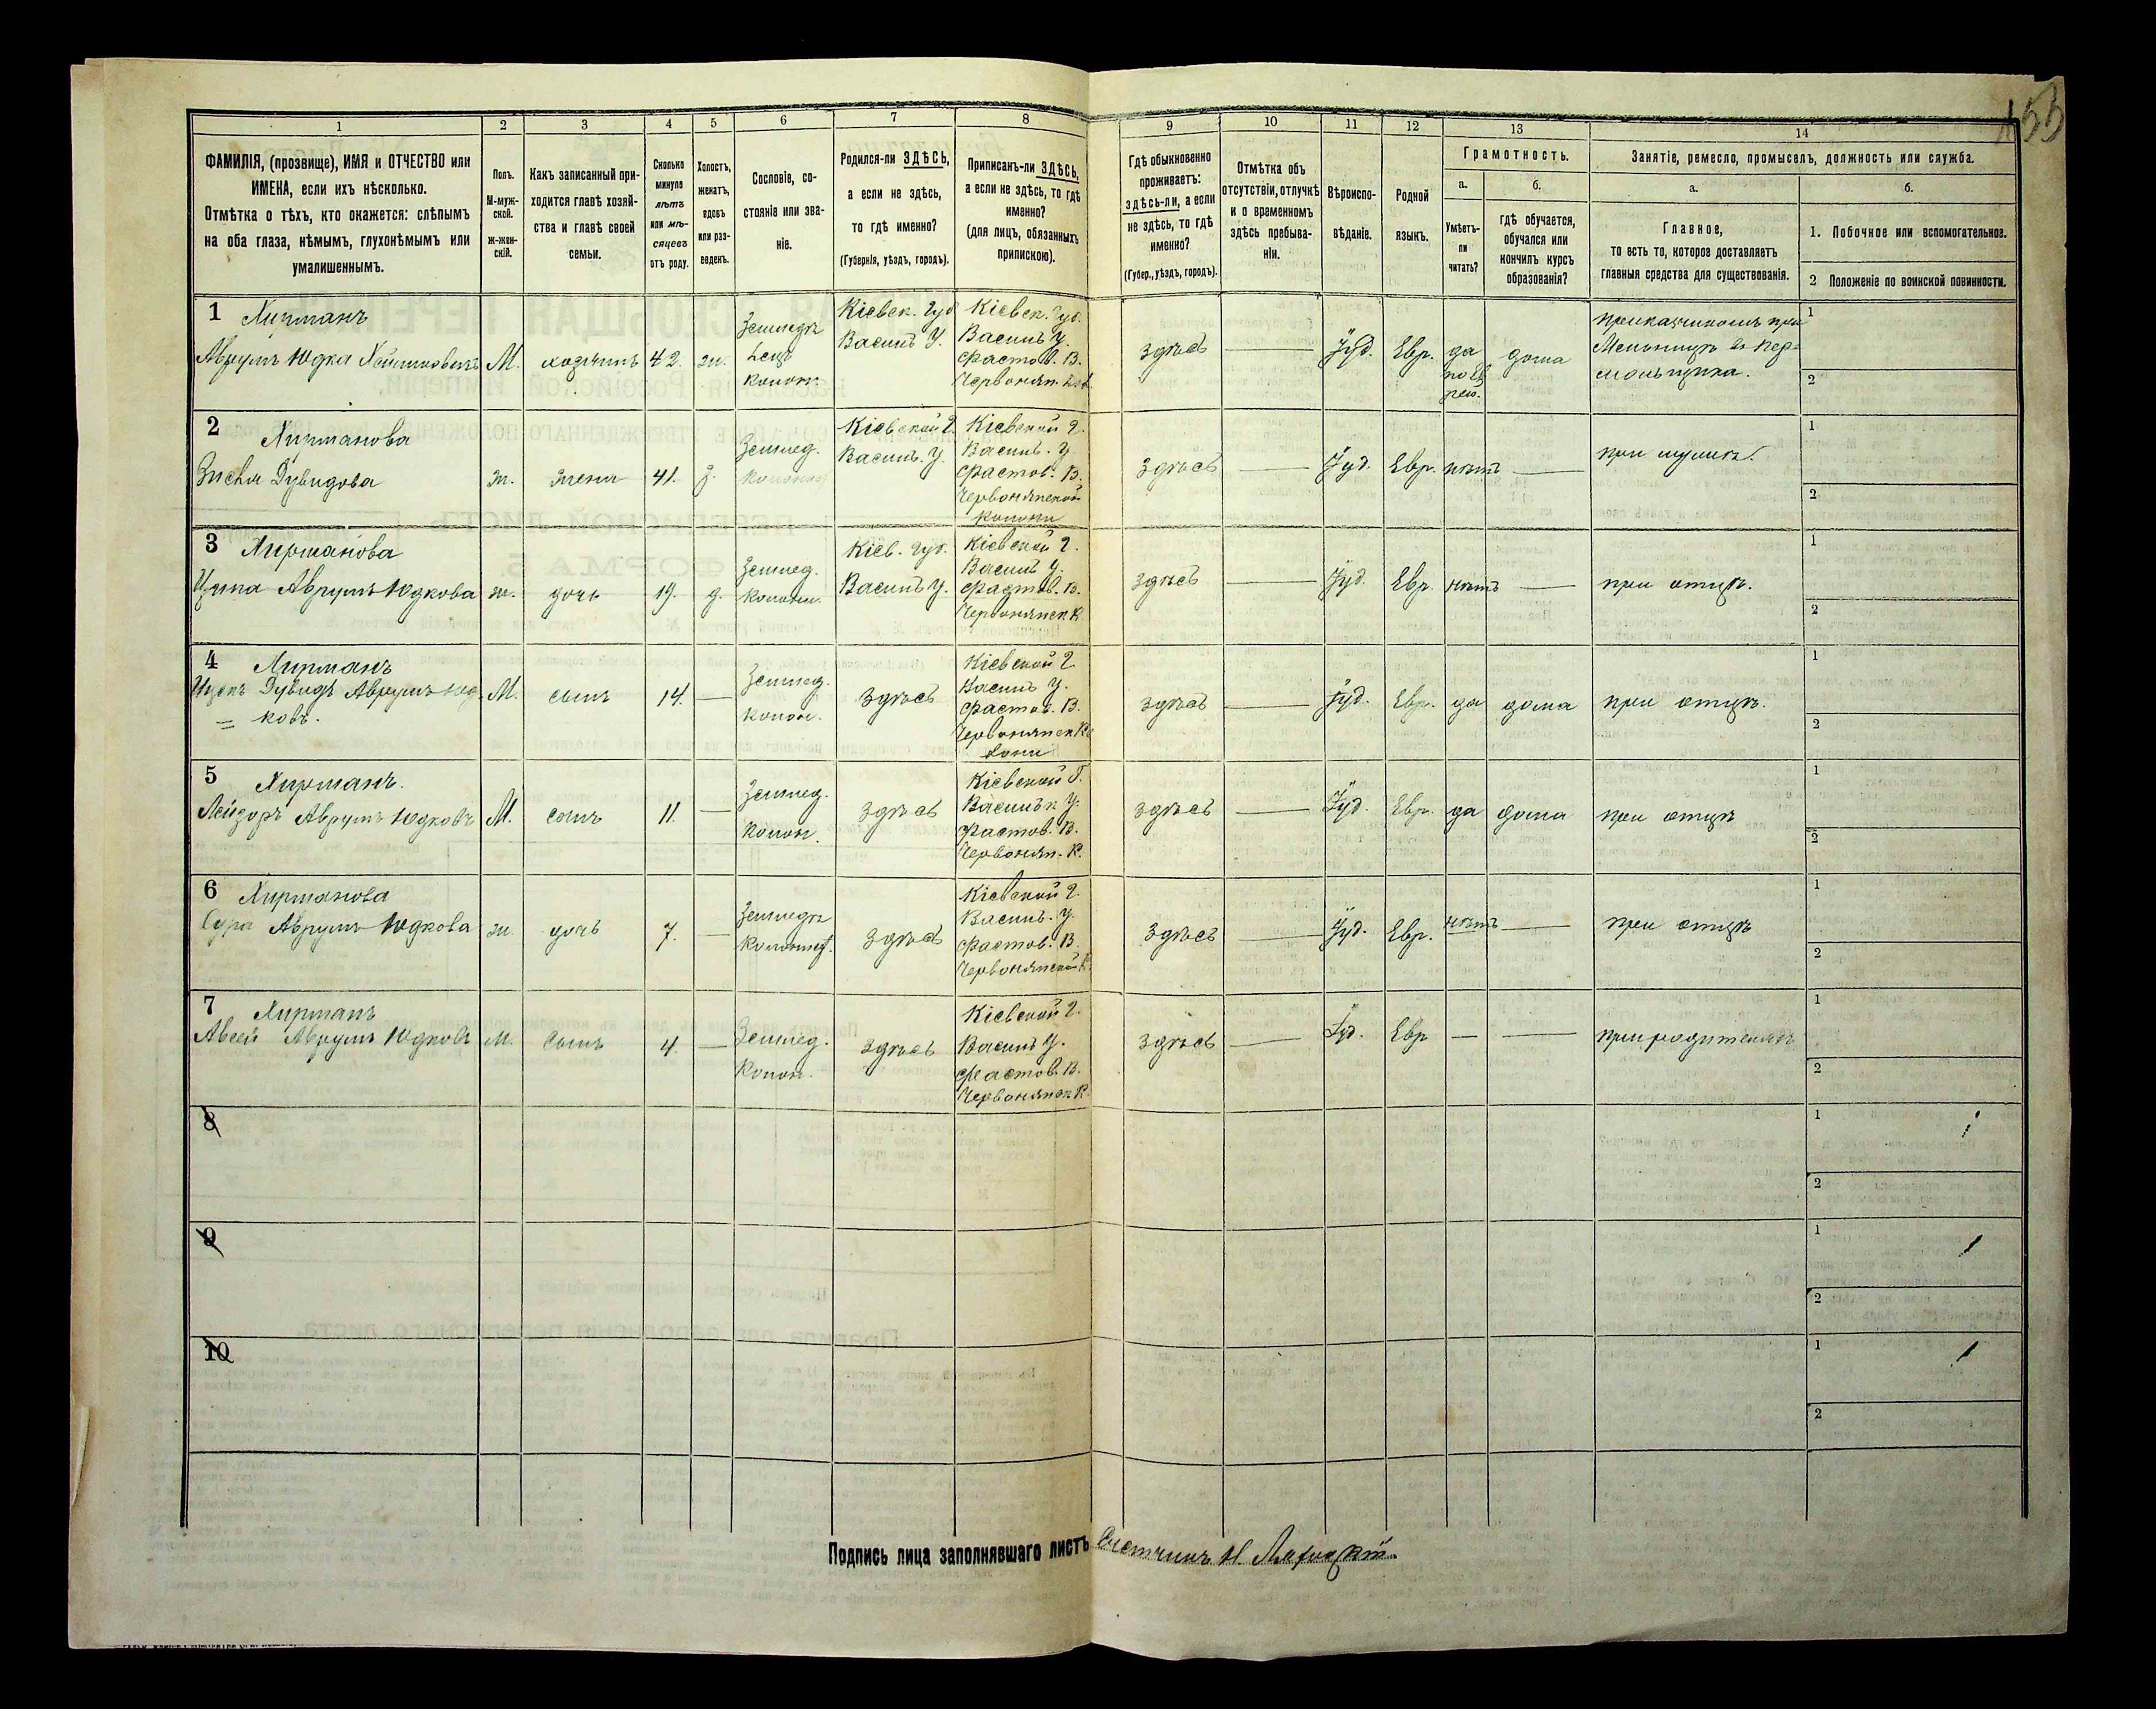 155
1 2 3 4 5 6 7 8 9 10 11 12 13 14
ФАМИЛІЯ, (прозвище), ИМЯ и ОТЧЕСТВО или
ИМЕНА, если ихъ нѣсколько.
Отмѣтка о тѣхъ, кто окажется: слѣпымъ
на оба глаза, нѣмымъ, глухонѣмымъ или
умалишеннымъ.
Полъ.
М-муж-
ской.
ж-жен-
скій.
Какъ записанный при-
ходится главѣ хозяй-
ства и главѣ своей
семьи.
Сколько
минуло
лѣтъ
или мѣ-
сяцевъ
отъ роду.
Холостъ,
женатъ,
вдовъ
или раз-
веденъ.
Сословіе, со-
стояніе или зва-
ніе.
Родился-ли ЗДѢСЬ,
а если не здѣсь,
то гдѣ именно?
(Губернія, уѣздъ, городъ).
Приписанъ-ли ЗДѢСЬ,
а если не здѣсь, то гдѣ
именно?
(для лицъ, обязанныхъ
припискою).
Гдѣ обыкновенно
проживаетъ:
здѣсь-ли, а если
не здѣсь, то гдѣ
именно?
(Губер., уѣздъ, городъ).
Отмѣтка объ
отсутствіи, отлучкѣ
и о временномъ
здѣсь пребыва-
ніи.
Вѣроиспо-
вѣданіе.
Родной
языкъ.
Грамотность.
а.
Умѣетъ-
ли
читать?
б.
гдѣ обучается,
обучался или
кончилъ курсъ
образованія?
Занятіе, ремесло, промыселъ, должность или служба.
а.
Главное,
то есть то, которое доставляетъ
главныя средства для существованія.
б.
1. Побочное или вспомогательное.
2 Положеніе по воинской повинности.
1
Аврумъ Юдка
М. хозяинъ 42. ж.
Кіевск. Губ
Василь У.
Кіевск. Губ.
Василь У.
Фастов. В.
здѣсь — Іуд. Евр. да дома
1
2
2
Дувидова
ж. жена 41. з.
Землед.
Кіевской г.
Василь. У.
Кіевской г.
Василь. У
Фастов. В.
Червонянской
колоніи
здѣсь — Іуд. Евр. нѣтъ — при мужѣ.
1
2
3
Аврумъ Юдкова
ж. дочь 19. д.
Землед.
Колони.
Кіев. Губ.
Василь У.
Кіевской г.
Василь У.
Фастов. В.
Червонянск К.
здѣсь — Іуд. Евр. нѣтъ — при отцѣ.
1
2
4
Дувидъ Аврумъ Юд-
= ковъ.
М. сынъ 14. —
Землед.
колон.
здѣсь
Кіевской г.
Василь У.
Фастов. В.
здѣсь — Іуд. Евр. да дома при отцѣ.
1
2
5
Лейзоръ Аврумъ Юдковъ
М. сынъ 11. —
Землед.
Колон.
здѣсь
Кіевской Г.
Васильк У.
Фастов. В.
Червонян. К.
здѣсь — Іуд. Евр. да дома при отцѣ
1
2
6
Сура Аврумъ Юдкова
ж дочь 7. —
здѣсь
Кіевской г.
Василь. У.
Фастов. В.
Червонянской К.
здѣсь — Іуд. Евр. нѣтъ — при отцѣ
1
2
7
Авсей Аврумъ Юдковъ
М. сынъ 4. —
Землед.
Колон.
здѣсь
Кіевской г.
Василь У.
Фастов. В.
Червонянск К.
здѣсь — Іуд. Евр — — при родителяхъ
1
2
8
1
2
9
1
2
10
1
2
Подпись лица заполнявшаго листъ Счетчикъ Н.